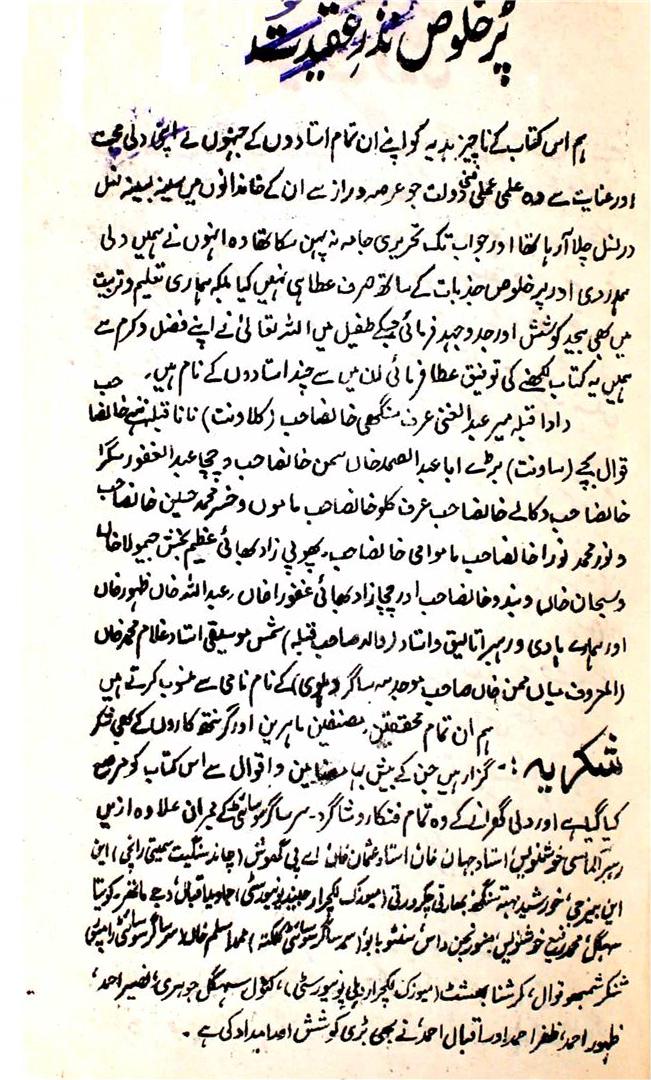 پُر خلوص نذرِ عقیدت
ہم اس کتاب کے ناچیز ہدیہ کو اپنے ان تمام استادوں کے جنہوں نے اپنی دلی محبت
اور عنایت سے وہ علمی عملی فنی دولت جو عرصہ دراز سے ان کے خاندانوں میں سینہ بسینہ نسل
در نسل چلا آ رہا تھا اور جو اب تک تحریری جامہ نہ پہن سکا تھا وہ انہوں نے ہمیں دلی
ہمدردی اور پر خلوص جذبات کے ساتھ صرف عطا ہی نہیں کیا بلکہ ہماری تعلیم و تربیت
میں بھی بیحد کوشش اور جدوجہد فرمائی جسکے طفیل میں اللہ تعالیٰ نے اپنے فضل و کرم سے
ہمیں یہ کتاب لکھنے کی توفیق عطا فرمائی ان میں سے چند استادوں کے نام ہیں۔
دادا قبلہ میر عبدالغنی عرف سنگھی خانصاحب (کلاونت) نانا قبلہ خانصاحب
قوال بچے (ساونت) بڑے ابا عبدالصمد خاں سمن خانصاحب و چچا عبدالغفور سگرا
خانصاحب و کالے خانصاحب عرف کلو خانصاحب ماموں و خسر محمد حسین خانصاحب
و نور محمد نورا خانصاحب مامو امی خانصاحب۔ پھوپی زاد بھائی عظیم بخش جیمولا خاں
و سبحان خاں و بندو خانصاحب اور چچا زاد بھائی غفورا خاں، عبداللہ خاں ظہور خاں
اور ہمارے ہادی و رہبر اتالیق و استاد (والد صاحب قبلہ) شمس موسیقی استاد غلام محمد خاں
(المعروف میاں ممن خاں صاحب موجد سر ساگر (دہلوی) کے نام نامی سے منسوب کرتے ہیں
شکریہ :- ہم ان تمام محققین، مصنفین ماہرین اور گرنتھ کاروں کے بھی شکر
گزار ہیں جن کے بیش بہا مضامین و اقوال سے اس کتاب کو مرصع
کیا گیا ہے اور دلی گھرانے کے وہ تمام فنکار و شاگرد۔ سر ساگر سوسائٹی کے ممبران علاوہ ازیں
رہبر الماسی خوشنویس، استاد جہان خان استاد عثمان خان اے پی گھوش (چاند سنگیت سمیتی رانچی) این
این بنرجی، خورشید بھارتی چکرورتی (میوزک لکچرار یونیورسٹی) جاوید اقبال، وجے ماتھر۔ کویتا
سہگل، محمد رفیق خوشنویس، منورنجن داس، سنتو بابو (سر ساگر سوسائٹی کلکتہ) محمد اسلم خاں (سر ساگر سوسائٹی
شنکر شمبھو قوال، کرشنا بھشٹ (میوزک لکچرار دہلی یونیورسٹی)، کنول سہگل جوہری، نصیر احمد،
ظہور احمد، ظفر احمد اور اقبال احمد، نے بھی بڑی کوشش و امداد کی ہے۔